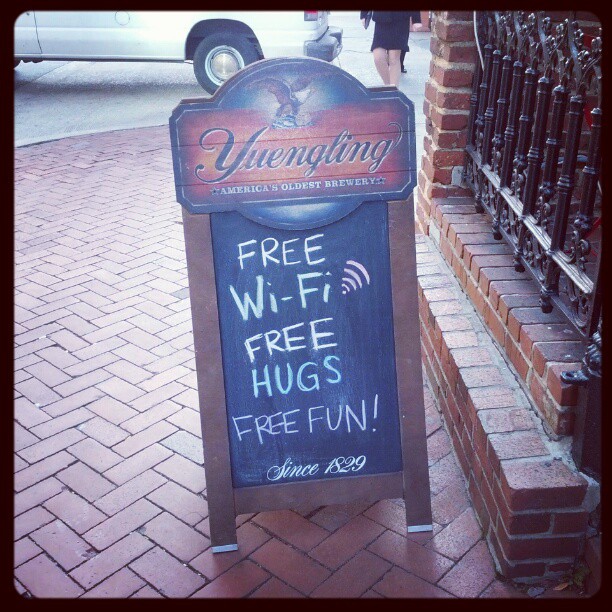 Yuengling
AMERICA'S OLDEST BREWERY
FREE
Wi-Fi
FREE
HUGS
FREE FUN!
Since 1829